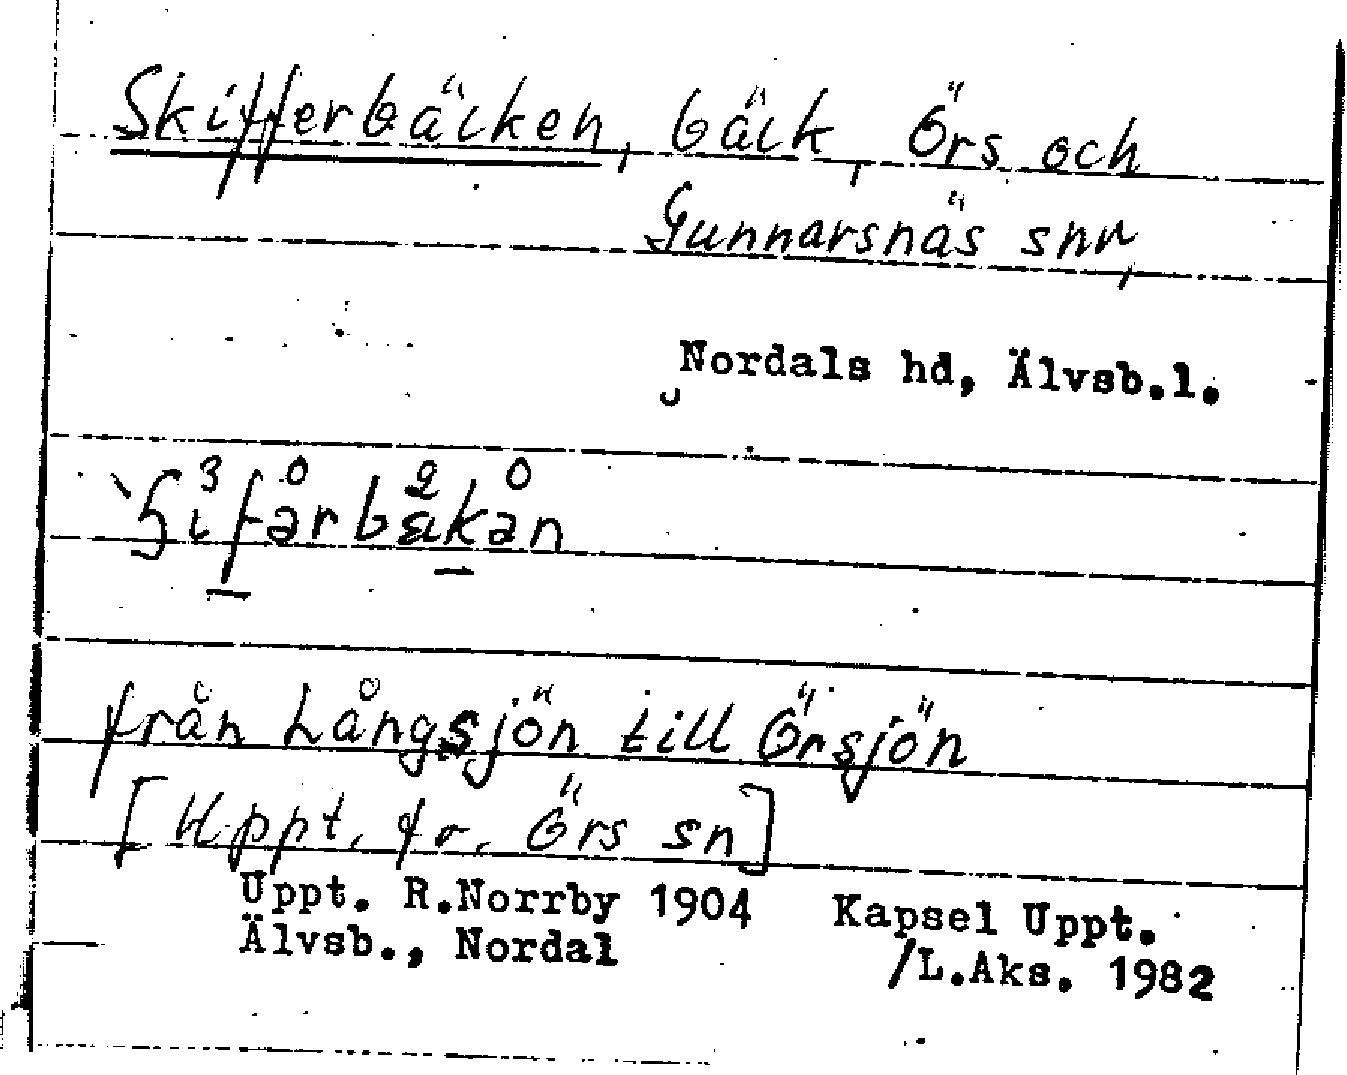 Skifferbäcken, bäck, Örs och
Gunnarsnäs snr,
Nordals hd, Älvsb.l.
från Långsjön till Örsjön
[Uppt. fr. Örs sn]
Uppt. R.Norrby 1904 Kapsel Uppt.
Älvsb., Nordal /L.Aks. 1982